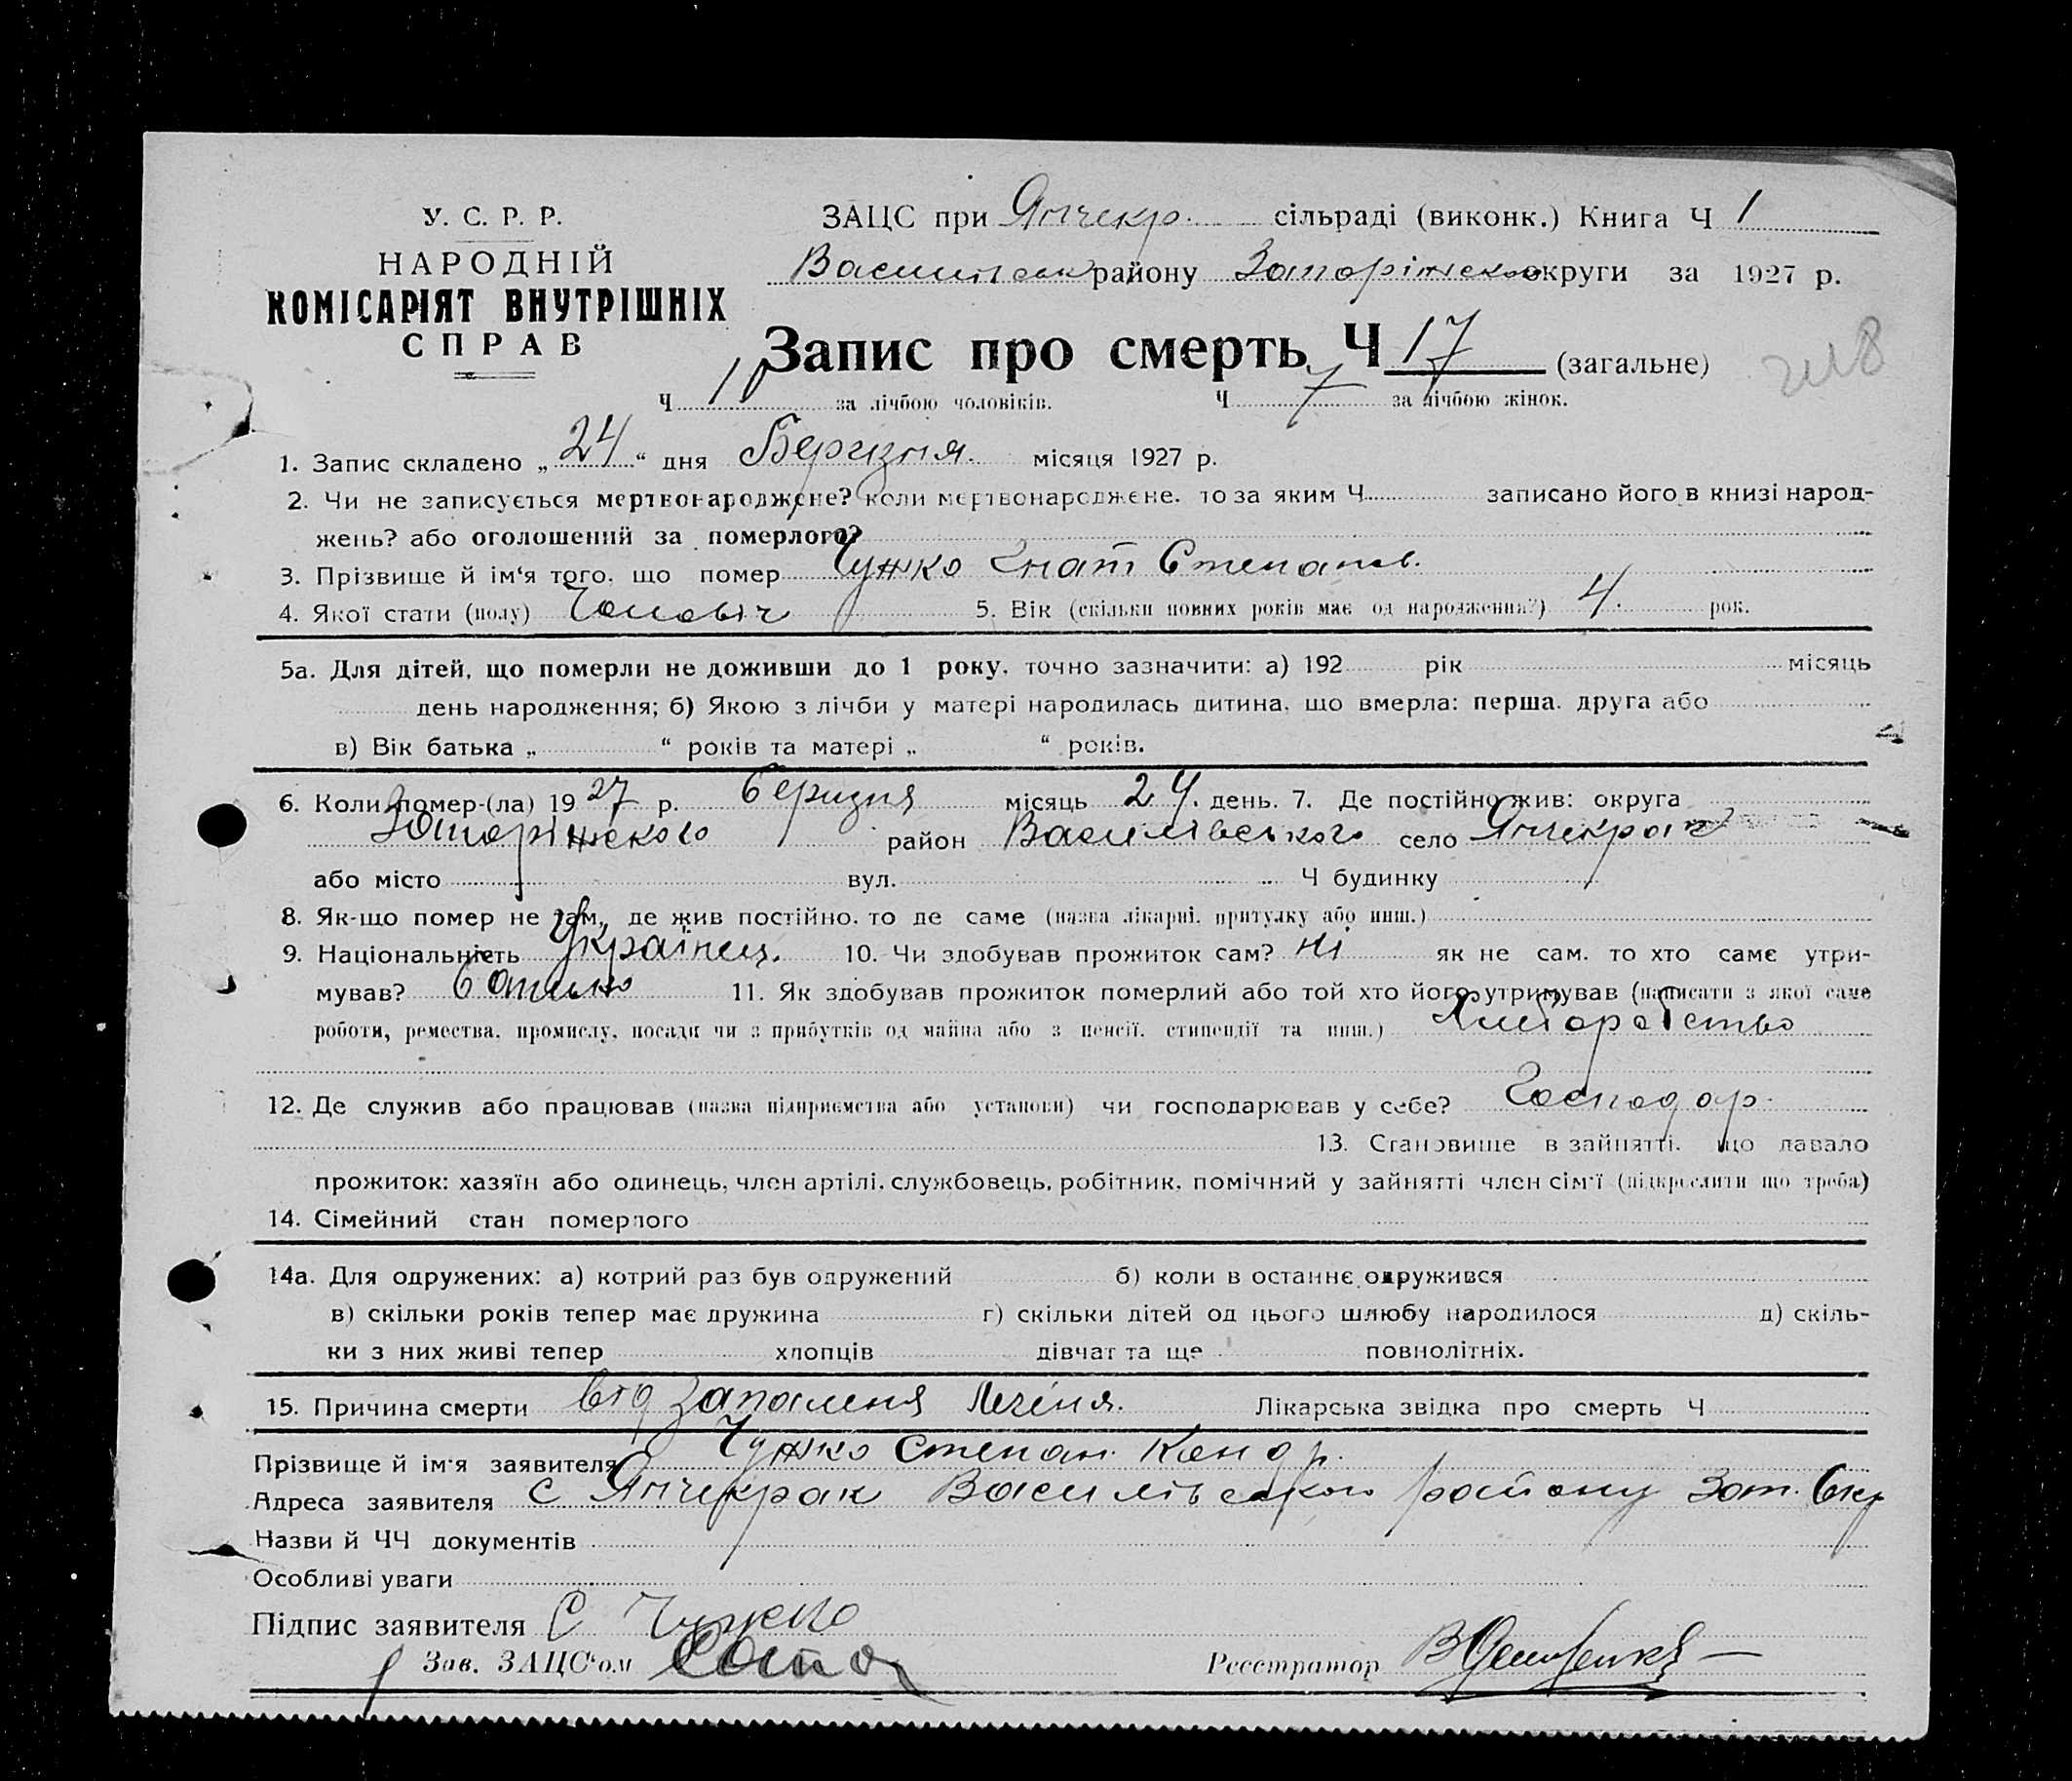 У. С. Р. Р.
НАРОДНІЙ
КОМІСАРІЯТ ВНУТРІШНІХ
СПРАВ
ЗАЦС при Янчекр. сільраді (виконк.) Книга Ч 1
району Запоріжської округи за 1927 р.
Запис про смерть Ч 17 (загальне)
Ч 10 за лічбою чоловіків. Ч 7 за лічбою жінок.
1. Запис складено „24“ дня Беризня. місяця 1927 р.
2. Чи не записується мертвонароджене? коли мертвонароджене. то за яким Ч записано його в книзі народ-
жень? або оголошений за померлого?
3. Прізвище й ім‘я того, що помер Чужко Гнат Степанов.
4. Якої стати (полу) Чоловіч 5. Вік (скільки повних років має од народження?) 4 рок.
5а. Для дітей, що померли не доживши до 1 року, точно зазначити: а) 192 рік місяць
день народження; б) Якою з лічби у матері народилась дитина, що вмерла: перша, друга або
в) Вік батька „ “ років та матері „ “ років.
6. Коли помер-(ла) 1927 р. беризня місяць 24. день. 7. Де постійно жив: округа
Запоріжського район Василівського село Янчекрак
або місто вул. Ч будинку
8. Як-що помер не там, де жив постійно, то де саме (назва лікарні, притулку або инш.)
9. Національність Українец. 10. Чи здобував прожиток сам? ні як не сам, то хто саме утри-
мував? батько 11. Як здобував прожиток померлий або той хто його утримував (написати з якої саме
роботи, ремества, промислу, посади чи з прибутків од майна або з пенсії, стипендії та инш.) Хліборобство
12. Де служив або працював (назва підприємства або установи) чи господарював у себе? Господар.
13. Становище в зайнятті, що давало
прожиток: хазяїн або одинець, член артілі, службовець, робітник, помічний у зайнятті член сім‘ї (підкреслити що треба)
14. Сімейний стан померлого
14а. Для одружених: а) котрий раз був одружений б) коли в останнє одружився
в) скільки років тепер має дружина г) скільки дітей од цього шлюбу народилося д) скіль-
ки з них живі тепер хлопців дівчат та ще повнолітніх.
15. Причина смерти від запаленя легіня. Лікарська звідка про смерть Ч
Прізвище й ім‘я заявителя Чужко Степан Кондр.
Адреса заявителя с Янчекрак Василівського району Зап. Окр
Назви й ЧЧ документів
Особливі уваги
Підпис заявителя С Чужко
Зав. ЗАЦС‘ом Реєстратор